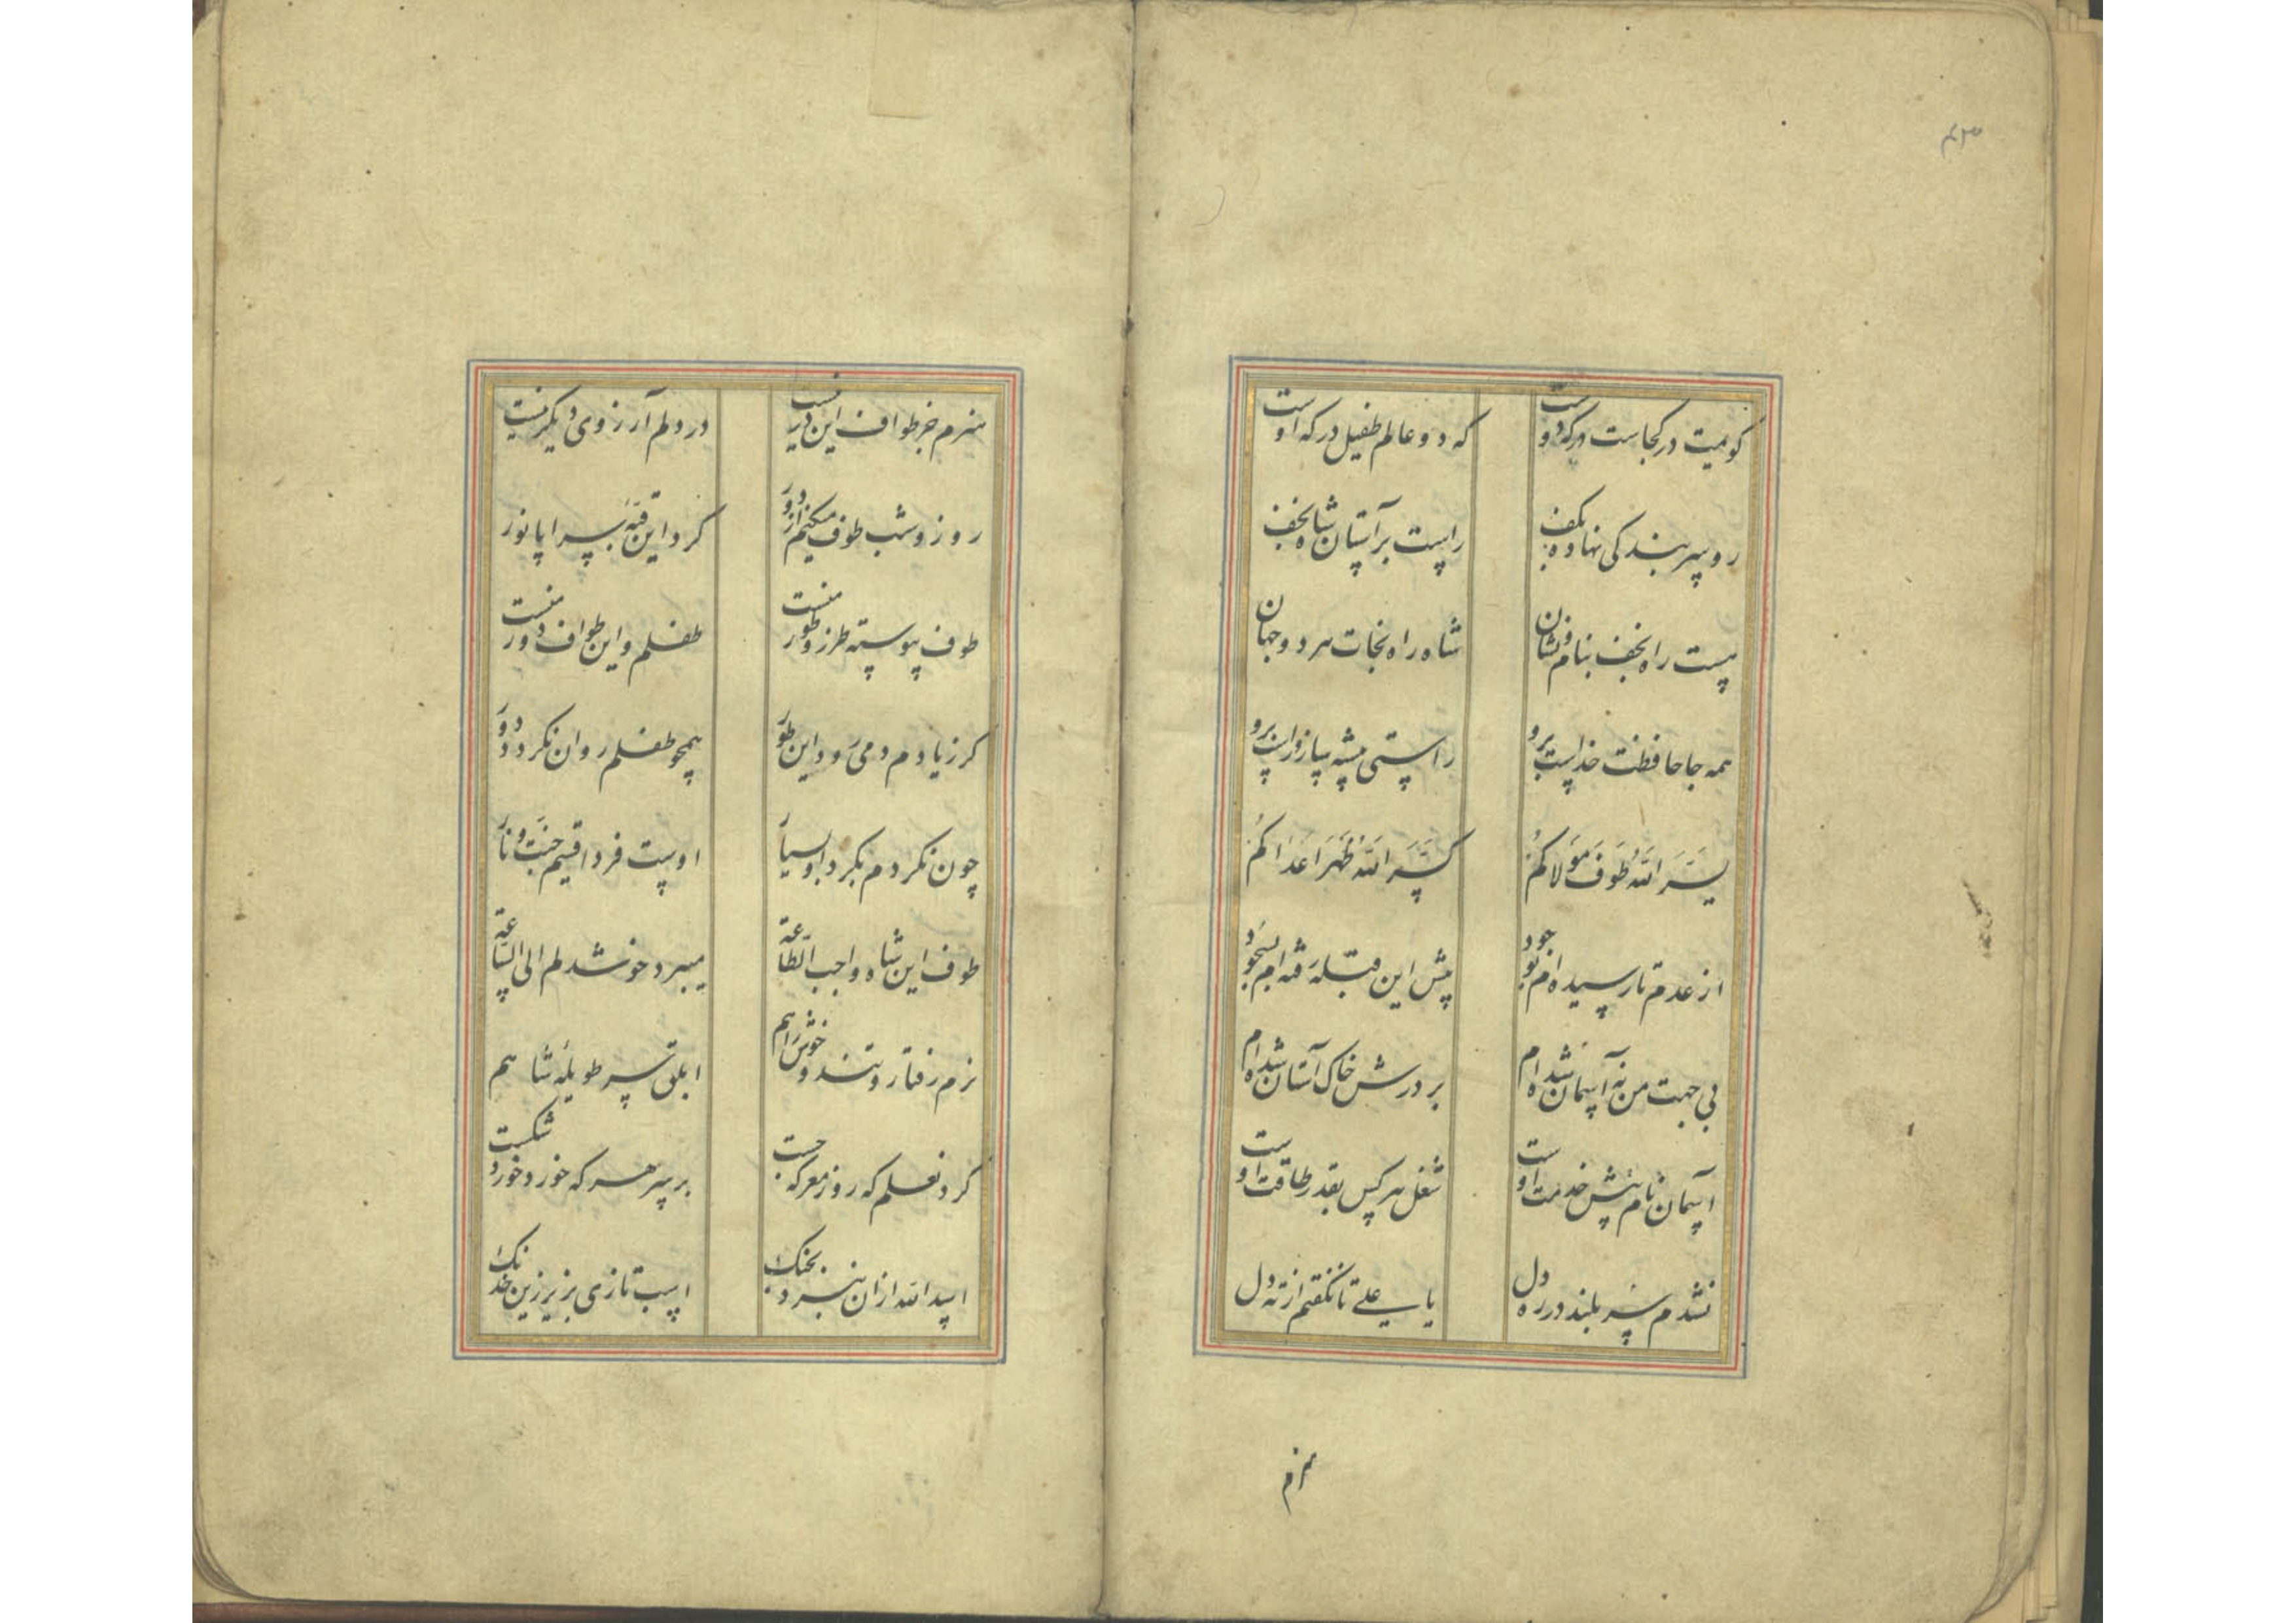 کویمت در کجاست درکه دوست که دو عالم طفیل درکه اوست
رو سر بندکی نهاده بکف راست بر آستان شاه نجف
هست راه نجف بنام و نشان شاه راه نجات هر دو جهان
همه جا حافظت خداست برو راستی پیشه ساز و راست برو
یَسَّرَ اللّٰهُ طَوفَ مَولاکُم کَسَّرَ اللّٰهُ ظَهرَ اَعداکُم
از عدم تا رسیده ام بوجود پیش این قبله رفته ام بسجود
بی جهت من نه آسمان شده ام بر درش خاک آستان شده ام
آسمان نامم پیش خدمت اوست شغل هر کس بقدر طاقت اوست
نشدم سر بلند در ره دل یا علی تا نگفتم از ته دل
نبرم
نبرم جز طواف این در نیست در دلم آرزوی دیکر نیست
روز و شب طوف میکنم از دور کرد این قبه سراپا نور
طوف پیوسته طرز و طور منست طفلم و این طواف دور منست
کر ز یادم دمی رود این طور همچو طفلم روان نکردد دور
چون نکردم بکرد او سیار اوست فردا قسیم جنت و نار
طوف این شاه واجب الطاعة میبرد خوش دلم الی الساعة
نرم رفتار و تند و خوش راهم ابلق سر طویلهٔ شاهم
کرد نعلم که روز معرکه جست بر سر هر که خورد خورد شکست
اسد الله ازان نبرد بجنک اسب تازی بزیر زین خدنک